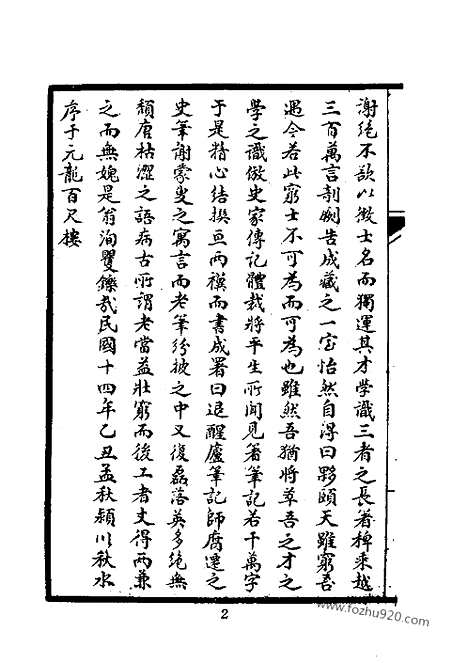 謝絕不欲以徵士名而獨運其才學識三者之長著稗乘越
三百萬言剞劂告成藏之一室怡然自得曰夥頤天雖窮吾
遇令若此窮士不可為而可為也雖然吾猶將萃吾之才之
學之識倣史家傳記體裁將平生所聞見著筆記若干萬字
于是精心結撰亘兩禩而書成署曰退醒廬筆記師腐遷之
史筆謝蒙叟之寓言而老筆紛披之中又復磊落英多絕無
頹唐枯澀之語病古所謂老當益壯窮而後工者丈得兩兼
之而無媿是翁洵矍鑠哉民國十四年乙丑孟秋潁川秋水
序于元龍百尺樓
2
www.fozhu920.com